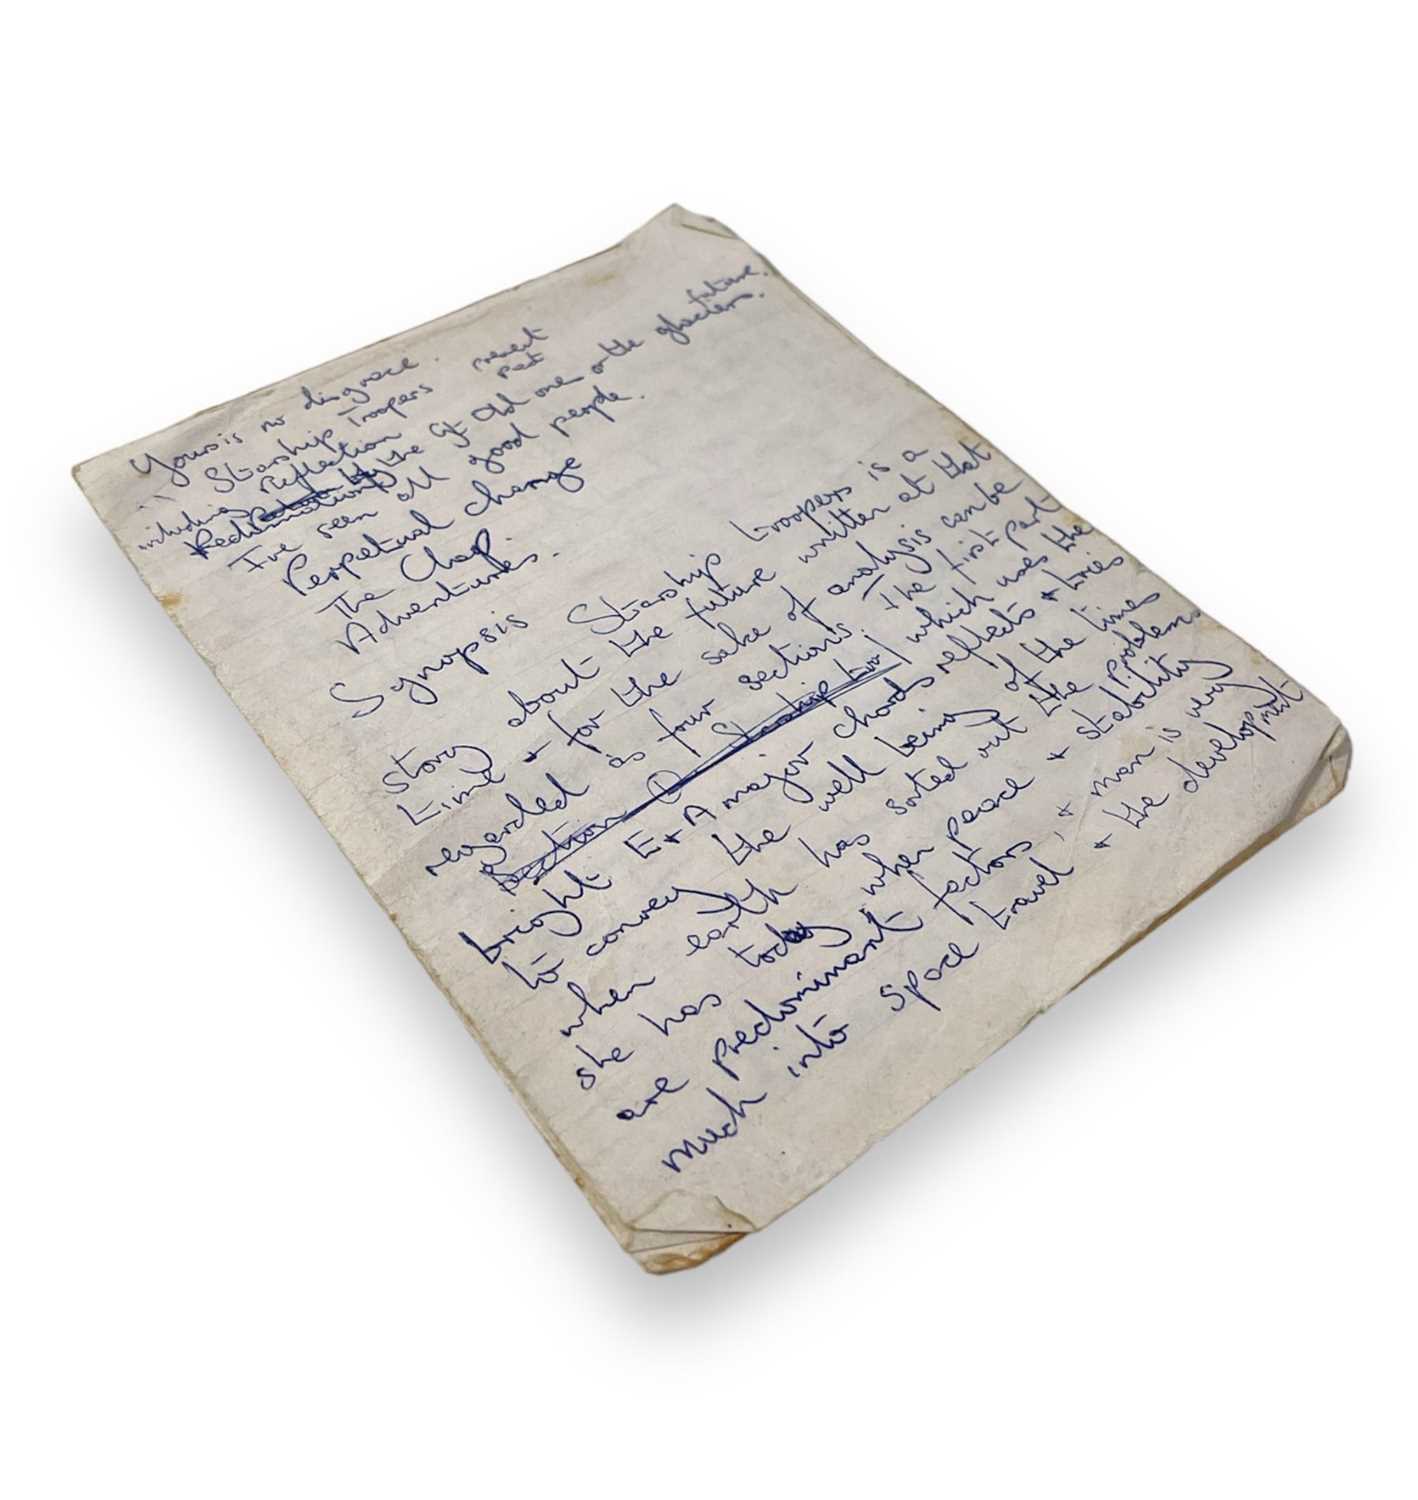 Yours is no disgrace. present future.
" Starship Troopers past
including reflection the Old one on the glaciers.
I've seen all good people.
Perpetual change
The Clap.
Adventures.
Synopsis Starship troopers is a
story about the future written at that
time + for the sake of analysis can be
regarded as four sections. The first part
Section Starship
bright E + A major chords which uses the
to convey the well being reflects + tries
when earth has sorted out of the times
she has today, when peace the problems
are predominant factors, + stability
much into space travel + man is very
+ the development